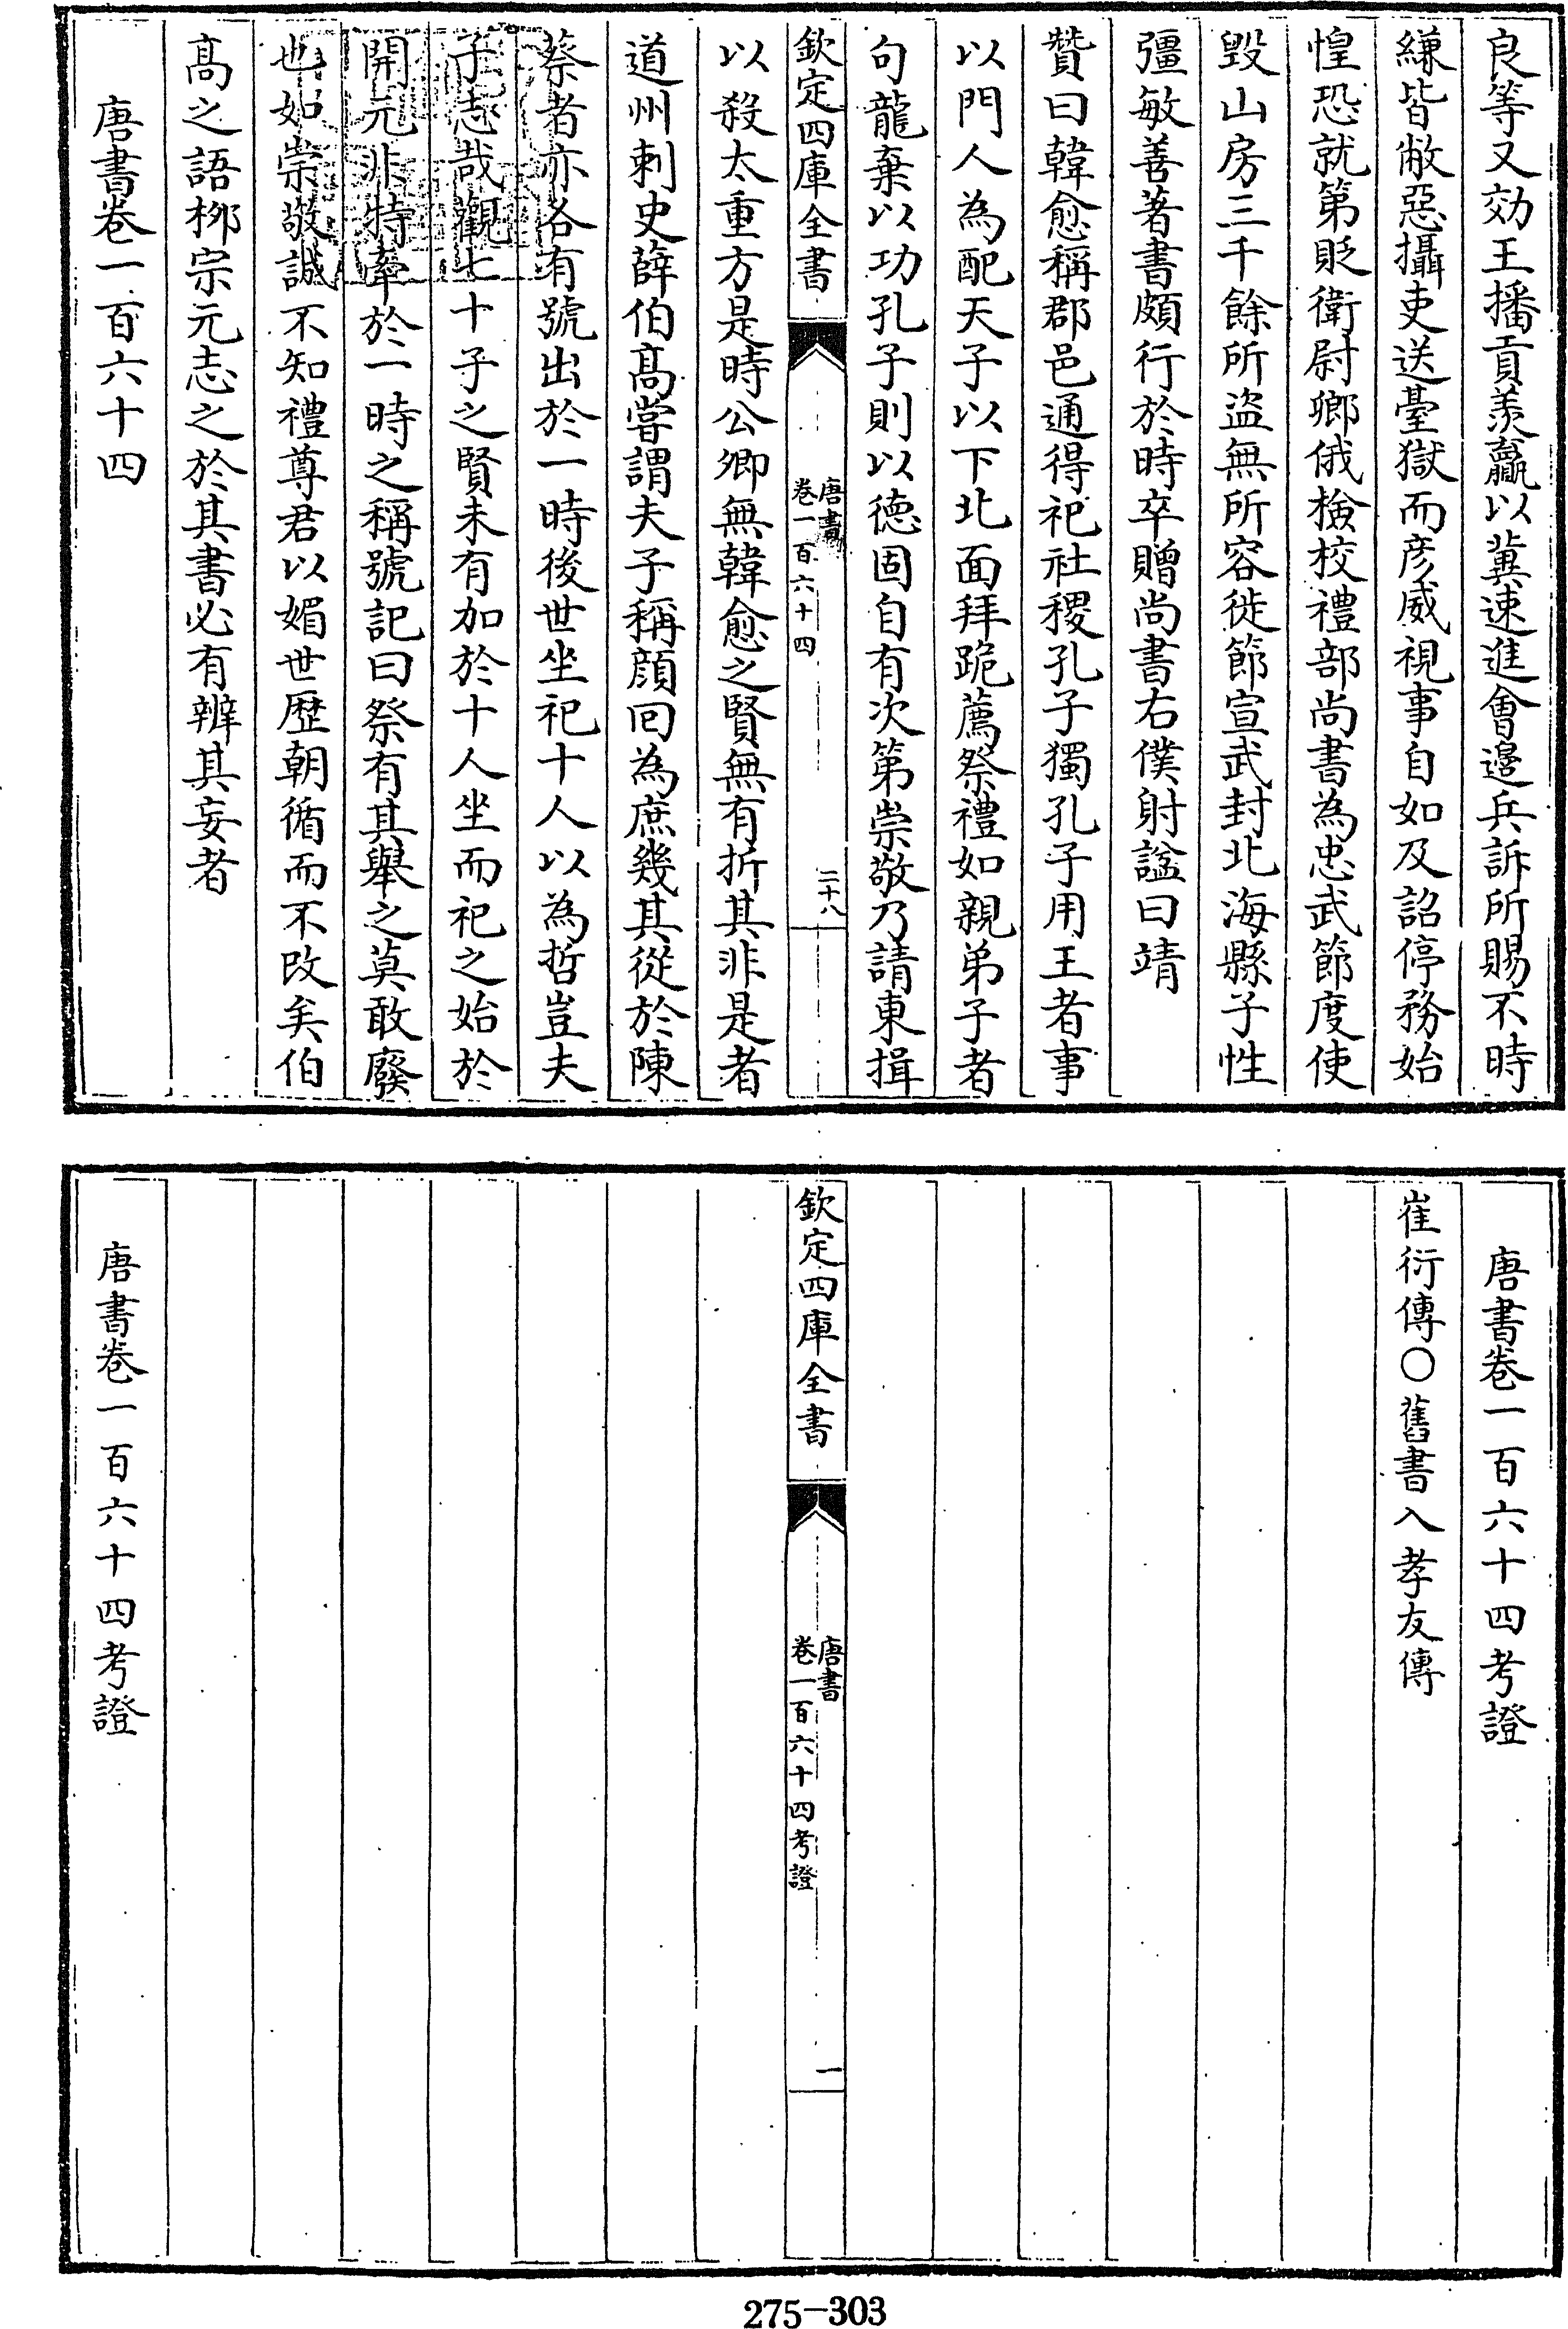 良等又効王播貢羨贏以冀速進會邊兵訴所賜不時
縑皆敝惡攝吏送臺獄而彦威視事自如及詔停務始
惶恐就第貶衛尉卿俄檢校禮部尚書為忠武節度使
毀山房三千餘所盜無所容徙節宣武封北海縣子性
彊敏善著書頗行於時卒贈尚書右僕射諡曰靖
贊曰韓愈稱郡邑通得祀社稷孔子獨孔子用王者事
以門人為配天子以下北面拜跪薦祭禮如親弟子者
句龍棄以功孔子則以徳固自有次第崇敬乃請東揖
欽定四庫全書
唐書
卷一百六十四
二十八
以殺太重方是時公卿無韓愈之賢無有折其非是者
道州刺史薛伯髙嘗謂夫子稱顔回為庶幾其從於陳
蔡者亦各有號出於一時後世坐祀十人以為哲豈夫
子志哉觀七十子之賢未有加於十人坐而祀之始於
開元非特牽於一時之稱號記曰祭有其舉之莫敢廢
也如崇敬誠不知禮尊君以媚世歴朝循而不改矣伯
髙之語柳宗元志之於其書必有辨其妄者
唐書卷一百六十四
唐書卷一百六十四考證
崔衍傳○舊書入孝友傳
欽定四庫全書
唐書
卷一百六十四考證
一
唐書卷一百六十四考證
275-303